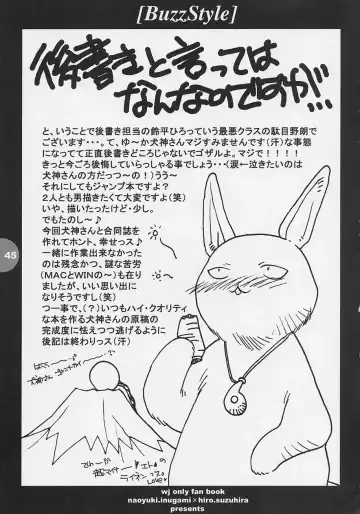 [BuzzStyle]
後書きと言っては
なんなのですが…
と、いうことで後書き担当の鈴平ひろっていう最悪クラスの駄目野朗で
ございます・・・。て、ゆ～か犬神さんマジすみませんです(汗)な事態
になってて正直後書きどころじゃないでゴザルよ。マジで！！！！
きっと今ごろ後悔していらっしゃる事でしょう・・・(涙←泣きたいのは
犬神さんの方だっつ～の！)うう～
それにしてもジャンプ本ですよ？
2人とも男描きたくて大変ですよ(笑)
いや、描いたったけど・少し。
でもたのし～♪
今回犬神さんと合同誌を
作れてホント、幸せっス♪
一緒に作業出来なかった
のは残念かつ、謎な苦労
(MACとWINの～)も在り
ましたが、いい思い出に
なりそうですし(笑)
つ一事で、(？)いつもハイ・クオリティ
な本を作る犬神さんの原稿の
完成度に怯えつつ逃げるように
後記は終わりっス(汗)
45
wj only fan book
naoyuki.inugami×hiro.suzuhira
presents